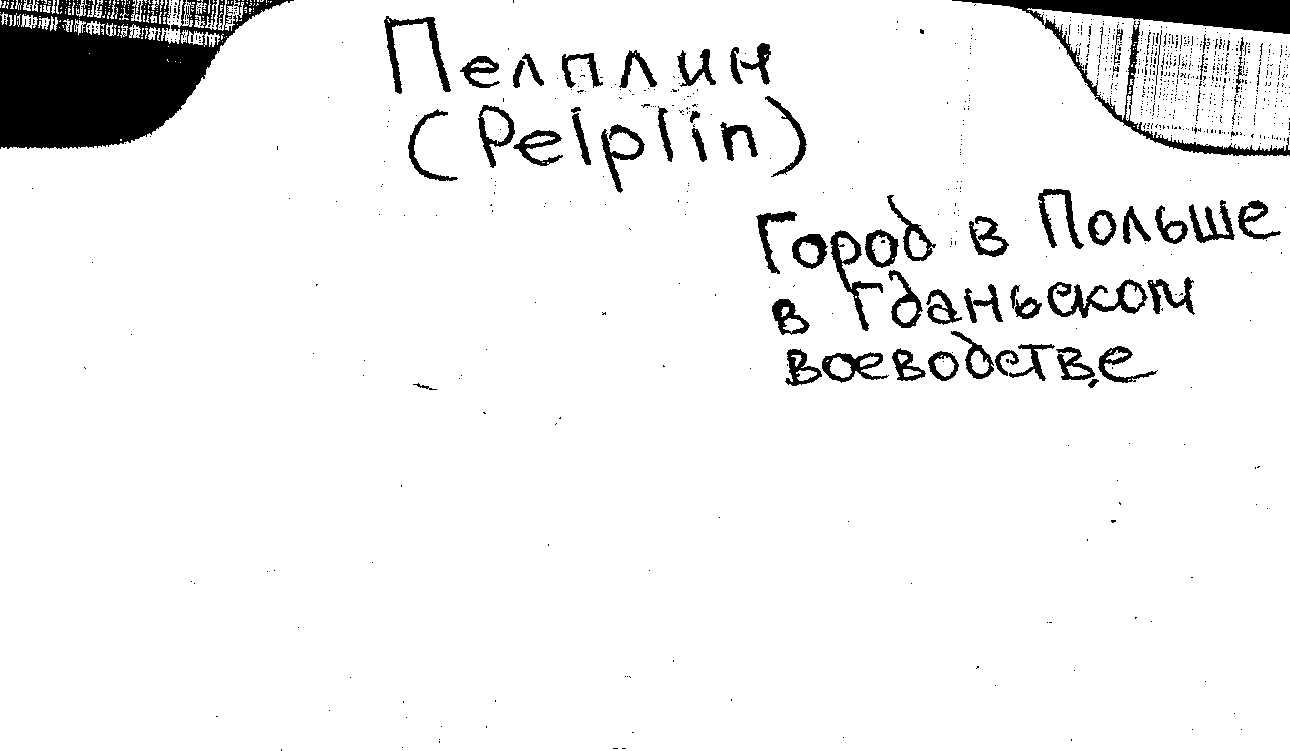 Пелплин
(Pelplin)
Город в Польше
в Гданьском
воеводстве